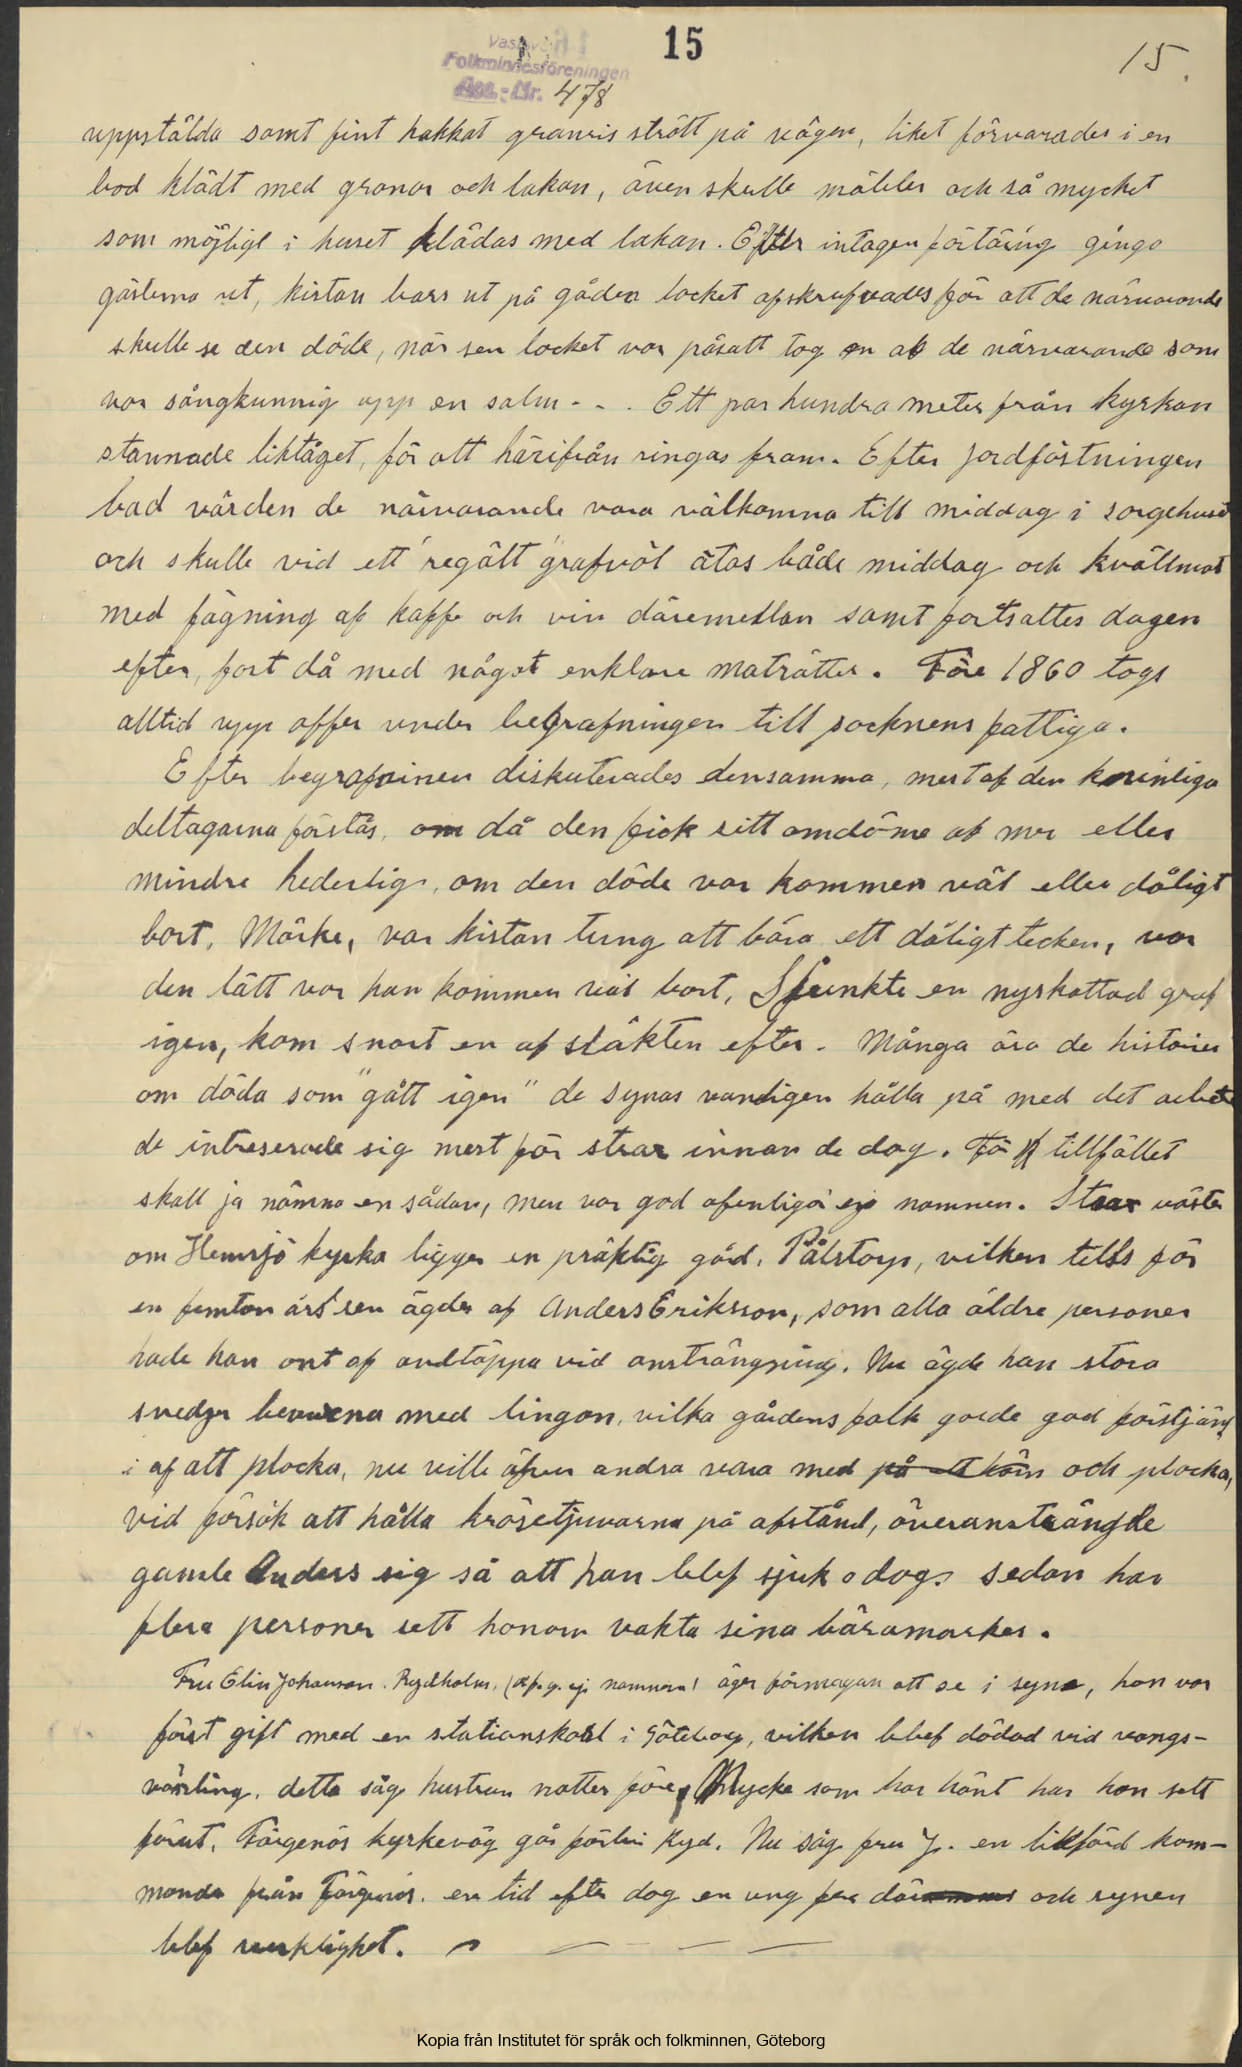 15
15.
Folkminnesföreningen
Acc.-Nr. 478
uppstälda samt fint hakkat granris strött på vägen, liket förvarades i en
bod klädt med granar och lakan, även skulle möbler och så mycket
som möjligt i huset klädas med lakan. Efter intagen förtäring gingo
gästerna ut, kistan bars ut på gården locket afskrufvades för att de närvarande
skulle se den döde, när sen locket var påsatt tog en af de närvarande som
var sångkunnig upp en salm - - . Ett par hundra meter från kyrkan
stannade liktåget, för att härifrån ringas fram. Efter jordfästningen
bad värden de närvarande vara välkomna till middag i sorgehuset
och skulle vid ett "regält" grafvöl ätas både middag och kvällmat
med fägning af kaffe och vin däremellan samt fortsattes dagen
efter, fort då med något enklare maträtter. Före 1860 togs
alltid upp offer under begrafningen till socknens fattiga.
Efter begrafninen diskuterades densamma, mest af den kvinliga
deltagarna förstås, om då den fick sitt omdöme af mer eller
mindre hederlig, om den döde var kommen väl eller dåligt
bort. Märke, var kistan tung att bära ett dåligt tecken, var
den lätt var han kommen väl bort, Sjunkte en nyskottad graf
igen, kom snart en af släkten efter. Många äro de historier
om döda som "gått igen" de synas vandligen hålla på med det arbete
de intreserade sig mest för strax innan de dog. För tillfället
skall ja nämna en sådan, men var god ofentligör ej namnen. Strax väster
om Hemsjö kyrka ligger en präktig gård, Pålstorp, vilken tills för
en femton års sen ägdes af Anders Eriksson, som alla äldre personer
hade han ont af andtäppa vid ansträngning. Nu ägde han stora
svedjer bevuxna med lingon, vilka gårdens folk gorde god förstjänst
i af att plocka, nu ville äfven andra vara med på ett hörn och plocka,
vid försök att hålla krösetjuvarna på afstånd, överansträngde
gamle Anders sig så att han blef sjuk o dog. sedan har
flera personer sett honom vakta sina bäramarker.
Fru Elin Johanson. Rydholm, ( ej namnen) äger förmågan att se i syne, hon var
först gift med en stationskarl i Göteborg, vilken blef dödad vid vangs-
växling, detta såg hustrun natten före, Mycke som har hänt har hon sett
förut. Färgenäs kyrkeväg går förbi Ryd. Nu såg fru J. en likfärd kom-
mande från Färgenäs. en tid efter dog en ung fru där och synen
blef verklighet.
Kopia från Institutet för språk och folkminnen, Göteborg